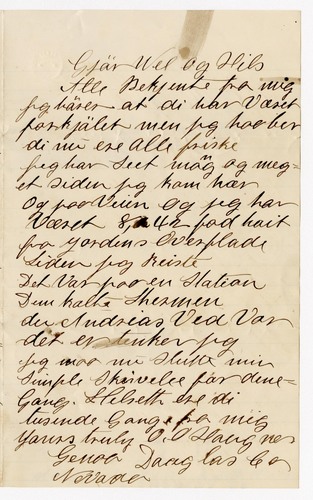 Gjär Wel og Hils
Alle Bekjente fra mig
jeg hårer at di har Været
forkjålet men jeg hoober
di nu ere Alle friske
jeg har Seet mang og meg-
et siden jeg kom hær
Og poo Veien og jeg har
Været 8,242 fod hait
fra Jordens Overflade
Siden jeg Reiste
Det Var poo en Station
Dem kalte Shermen
du Andreias Ved Var
det er tenker jeg
jeg maa nu Slutte min
Simple Skrivelse for dene-
Gang. Hilsett ere di
tusende Gange fra mig
Yours truly O. O Haugnes
Genoa Dauglas Co
Nevada